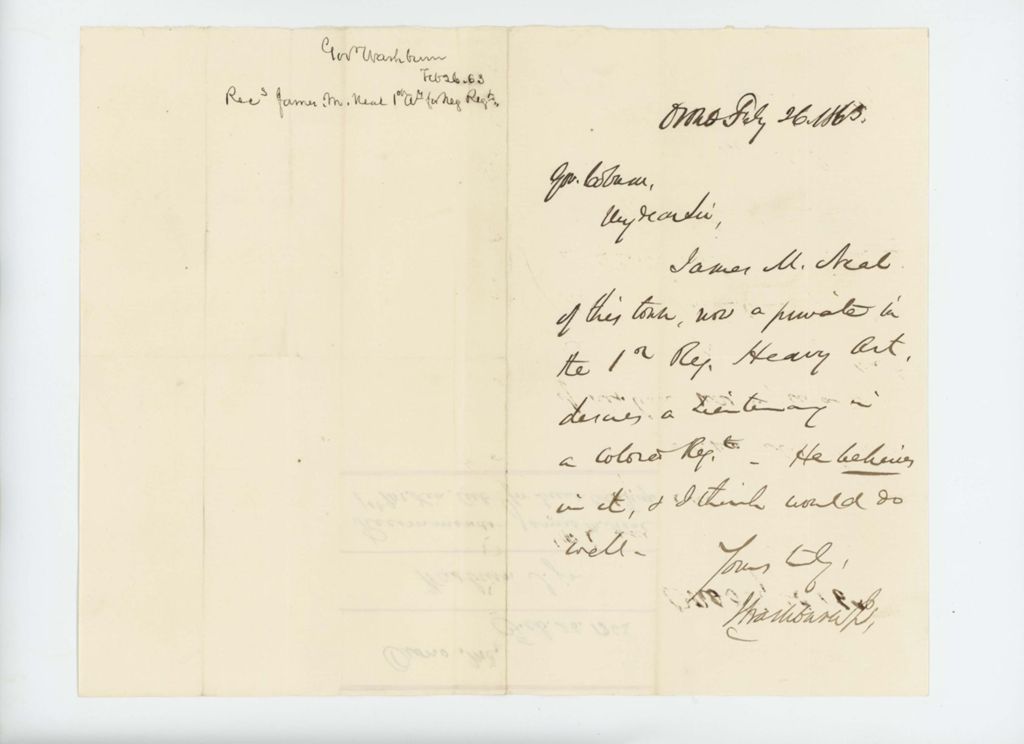 Gov Washburn
Feb 26. 63
Recs James M. Neal 1st Art for Neg Regt.
Orono Feby 26. 1863.
Gov. Coburn,
My dear Sir,
James M. Neal
of this town, now a private in
the 1st Reg. Heavy Art.
desires a Lieutenancy in
a colored Regt. - He believes
in it, & I think would do
well -
Yours truly,
I Washburn Jr,
Orono, Me,
Feb. 26. 1863
Washburn Jr
Recommends James M. Neal